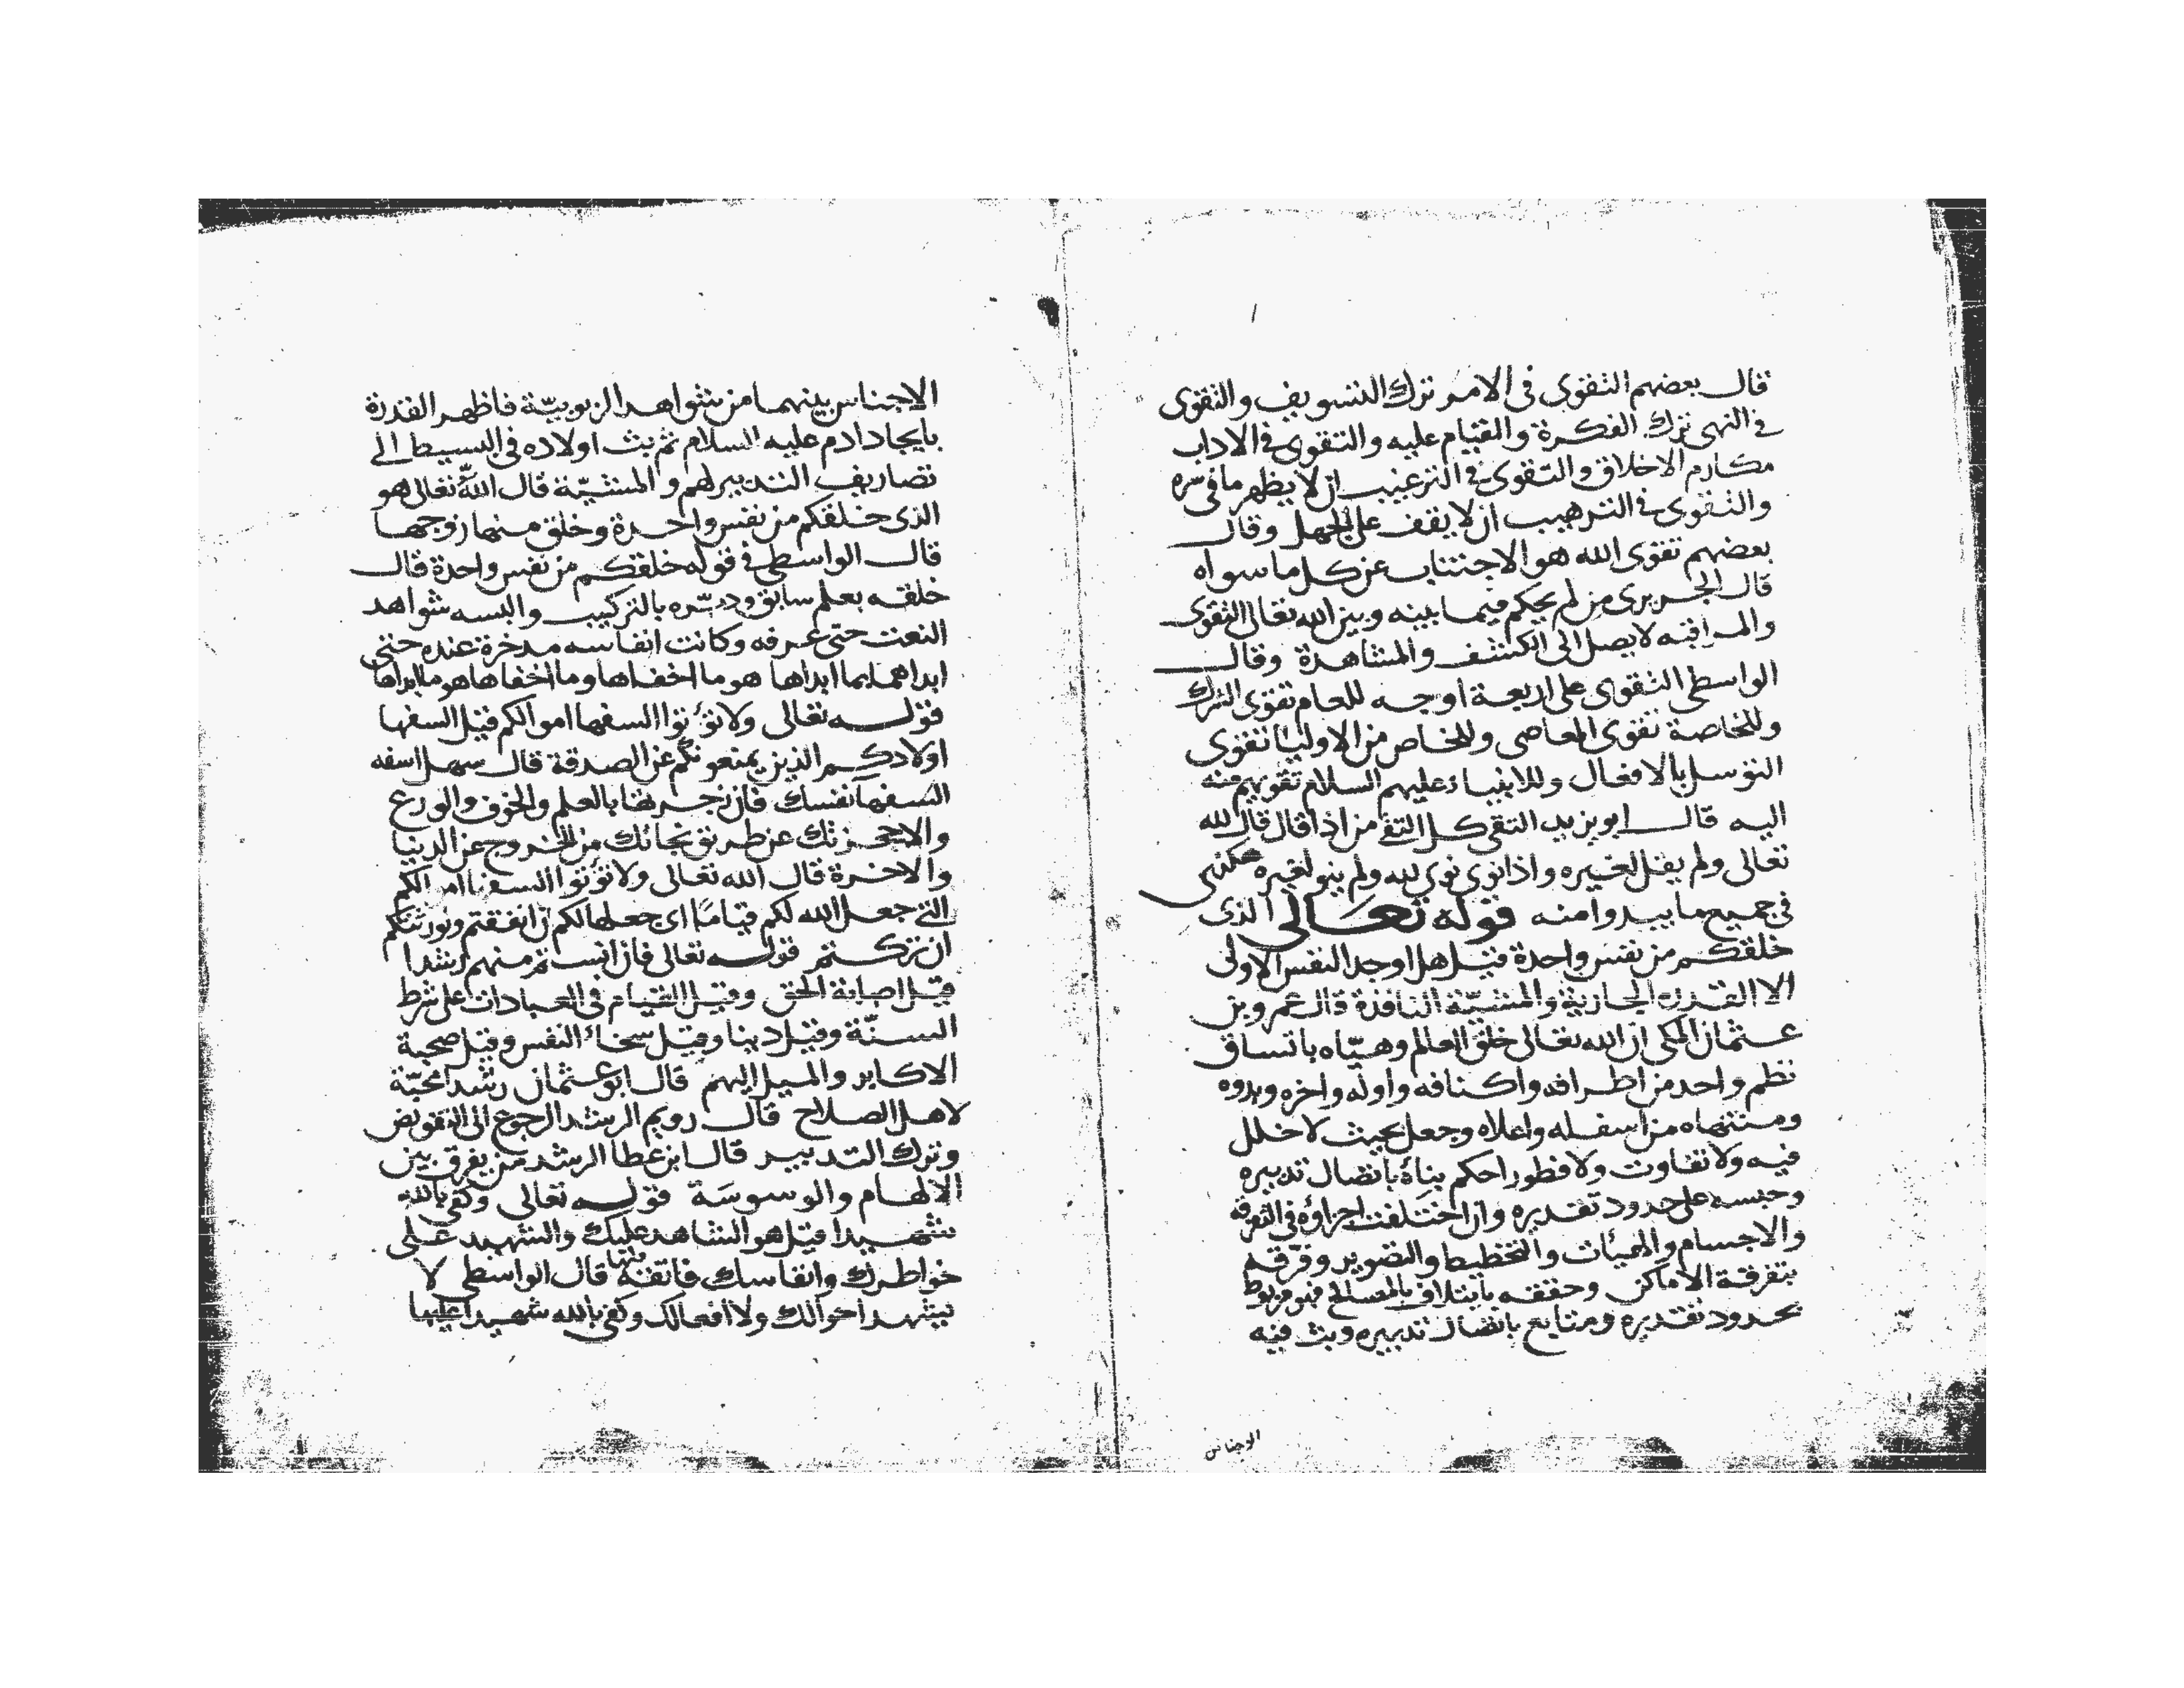 قال بعضهم التقوى فى الامر ترك التسويف والتقوى
فى النهى ترك الفكرة والقيام عليه والتقوى فى الاداب
مكارم الاخلاق والتقوى فى الترغيب ان لا يظهر ما فى سره
والتقوى فى الترهيب ان لا يقف على الجهل وقال
بعضهم تقوى الله هو الاجتناب عن كل ما سواه
قال الجريرى من لم يحكم فيما بينه وبين الله تعالى التقوى
والمراقبه لا يصل الى الكشف والمشاهدة وقال
الواسطى التقوى على اربعة اوجه للعام تقوى الشرك
وللخاصة تقوى المعاصى وللخاص من الاوليا تقوى
التوسل بالافعال وللانبياء عليهم السلام تقويهم منه
اليه قال ابو يزيد التقى كل التقى من اذا قال قال لله
تعالى ولم يقل لغيره واذا نوى نوى لله ولم ينو لغيره
فى جميع ما يبدوا منه قوله تعالى الذى
خلقكم من نفس واحدة قيل هل اوجد النفس الاولى
الا القدرة الجارية والمشيّة النافذة قال عمرو بن
عثمان المكى ان الله تعالى خلق العالم وهيّاه باتساق
نظم واحد من اطرافه واكنافه واوله واخره وبدوه
ومنتهاه من اسفله واعلاه وجعل بحيث لا خلل
فيه ولا تفاوت ولا فطور احكم بناءه باتصال تدبيره
وحبسه على حدود تقديره وان اختلفت اجزاؤه فى التفرقه
والاجسام والهيئات والتخطيط والتصوير وفرّقه
بتفرقة الاماكن وحققه بايتلاف بالمصالح فهو مربوط
بحدود تقديره ومتابع باتصال تدبيره وبث فيه
الاجناس
الاجناس بينهما من شواهد الربوبيّة فاظهر القدرة
بايجاد ادم عليه السلام ثم بث اولاده فى البسيط الى
تصاريف التدبير لهم والمشيّة قال الله تعالى هو
الذى خلقكم من نفس واحدة وخلق منها زوجها
قال الواسطى فى قوله خلقكم من نفس واحدة قال
خلقه بعلم سابق ودبّره بالتركيب والبسه شواهد
النعت حتى عرفه وكانت انفاسه مدخرة عنده حتى
ابداها بما ابداها هو ما اخفاها وما اخفاها هو ما ابداها
قوله تعالى ولا تؤتوا السفها اموالكم قيل السفها
اولادكم الذين يمنعونكم عن الصدقة قال سهل اسفه
السفهآ نفسك فان زجرتها بالعلم والخوف والورع
والا حجزتك عن طريق نجاتك من الخروج عن الدنيا
والاخرة قال الله تعالى ولا تؤتوا السفها اموالكم
التى جعل الله لكم قيامًا اى جعلها لكم ان انفقتم وتورثكم
ان تركتم قوله تعالى فان انستم منهم رشدا
قيل اصابة الحق وقيل القيام فى العبادات على شرط
السنّة وقيل دينا وقيل سخاء النفس وقيل صحبة
الاكابر والميل اليهم قال ابو عثمان رشدا محبّة
لاهل الصلاح قال رويم الرشد الرجوع الى التفويض
وترك التدبير قال ابن عطا الرشد من يفرق بين
الالهام والوسوسَة قوله تعالى وكفى بالله
شهيدا قيل هو الشاهد عليك والشهيد على
خواطرك وانفاسك فاتقه قال الواسطى لا
يشهد احوالك ولا افعالك وكفى بالله شهيدا عليها